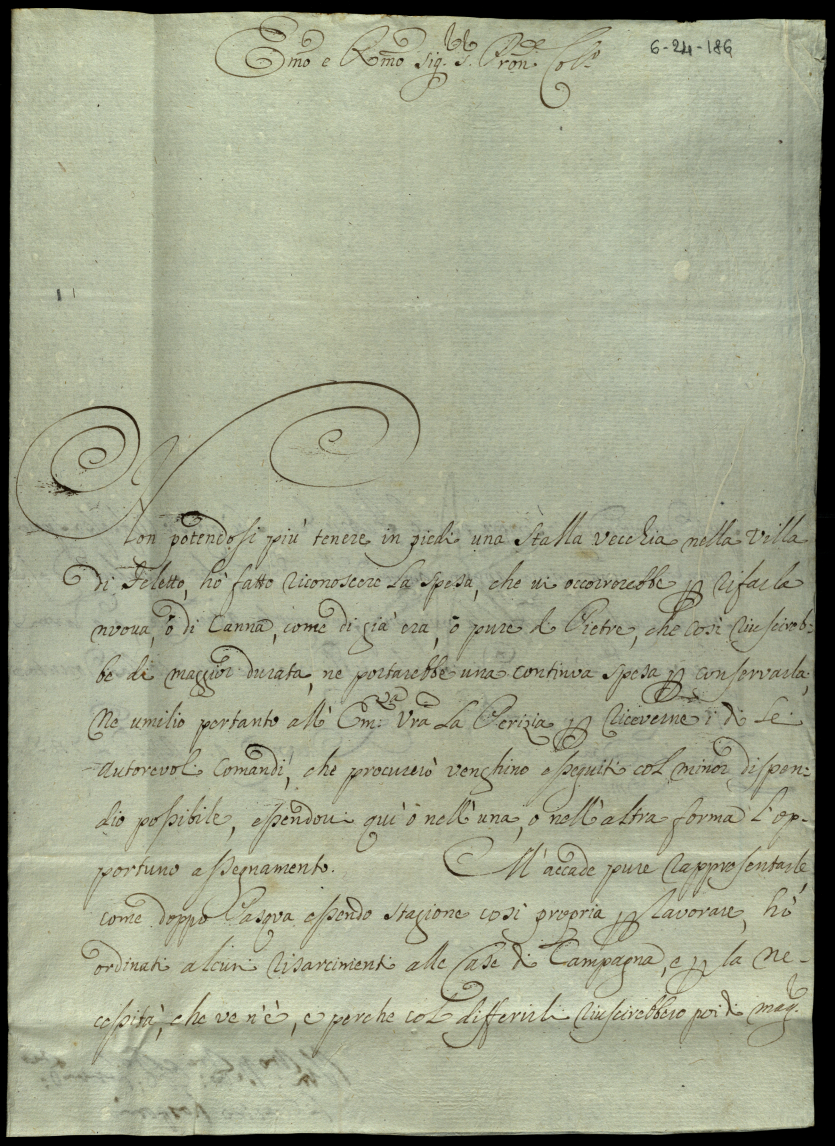 6-24-186
Emo e Rmo Sig. S. Pron. Col.
Non potendosi più tenere in piedi una Stalla vecchia nella Villa
di Feletto, hò fatto riconoscere la spesa, che vi occorrerebbe p rifarla
nuova, ò di Canna, come di già era, ò pure di Pietre, che così riuscireb-
be di maggior durata, ne portarebbe una continua spesa p conservarla;
Ne umilio portanto all' Em.za Vra La Perizia p riceverne i di Lei
autorevoli Comandi, che procurerò venghino esseguiti col minor dispen-
dio possibile, essendovi quì ò nell'una, o nell'altra forma l'op-
portuno assegnamento. M'accade pure rappresentarle
come doppo Pasqua essendo stagione così propria p lavorare, hò
ordinati alcuni risarcimenti alle Case di Campagna, e p la ne-
cessità, che ve n'è, e perche col differirli riuscirebbero poi di mag.r